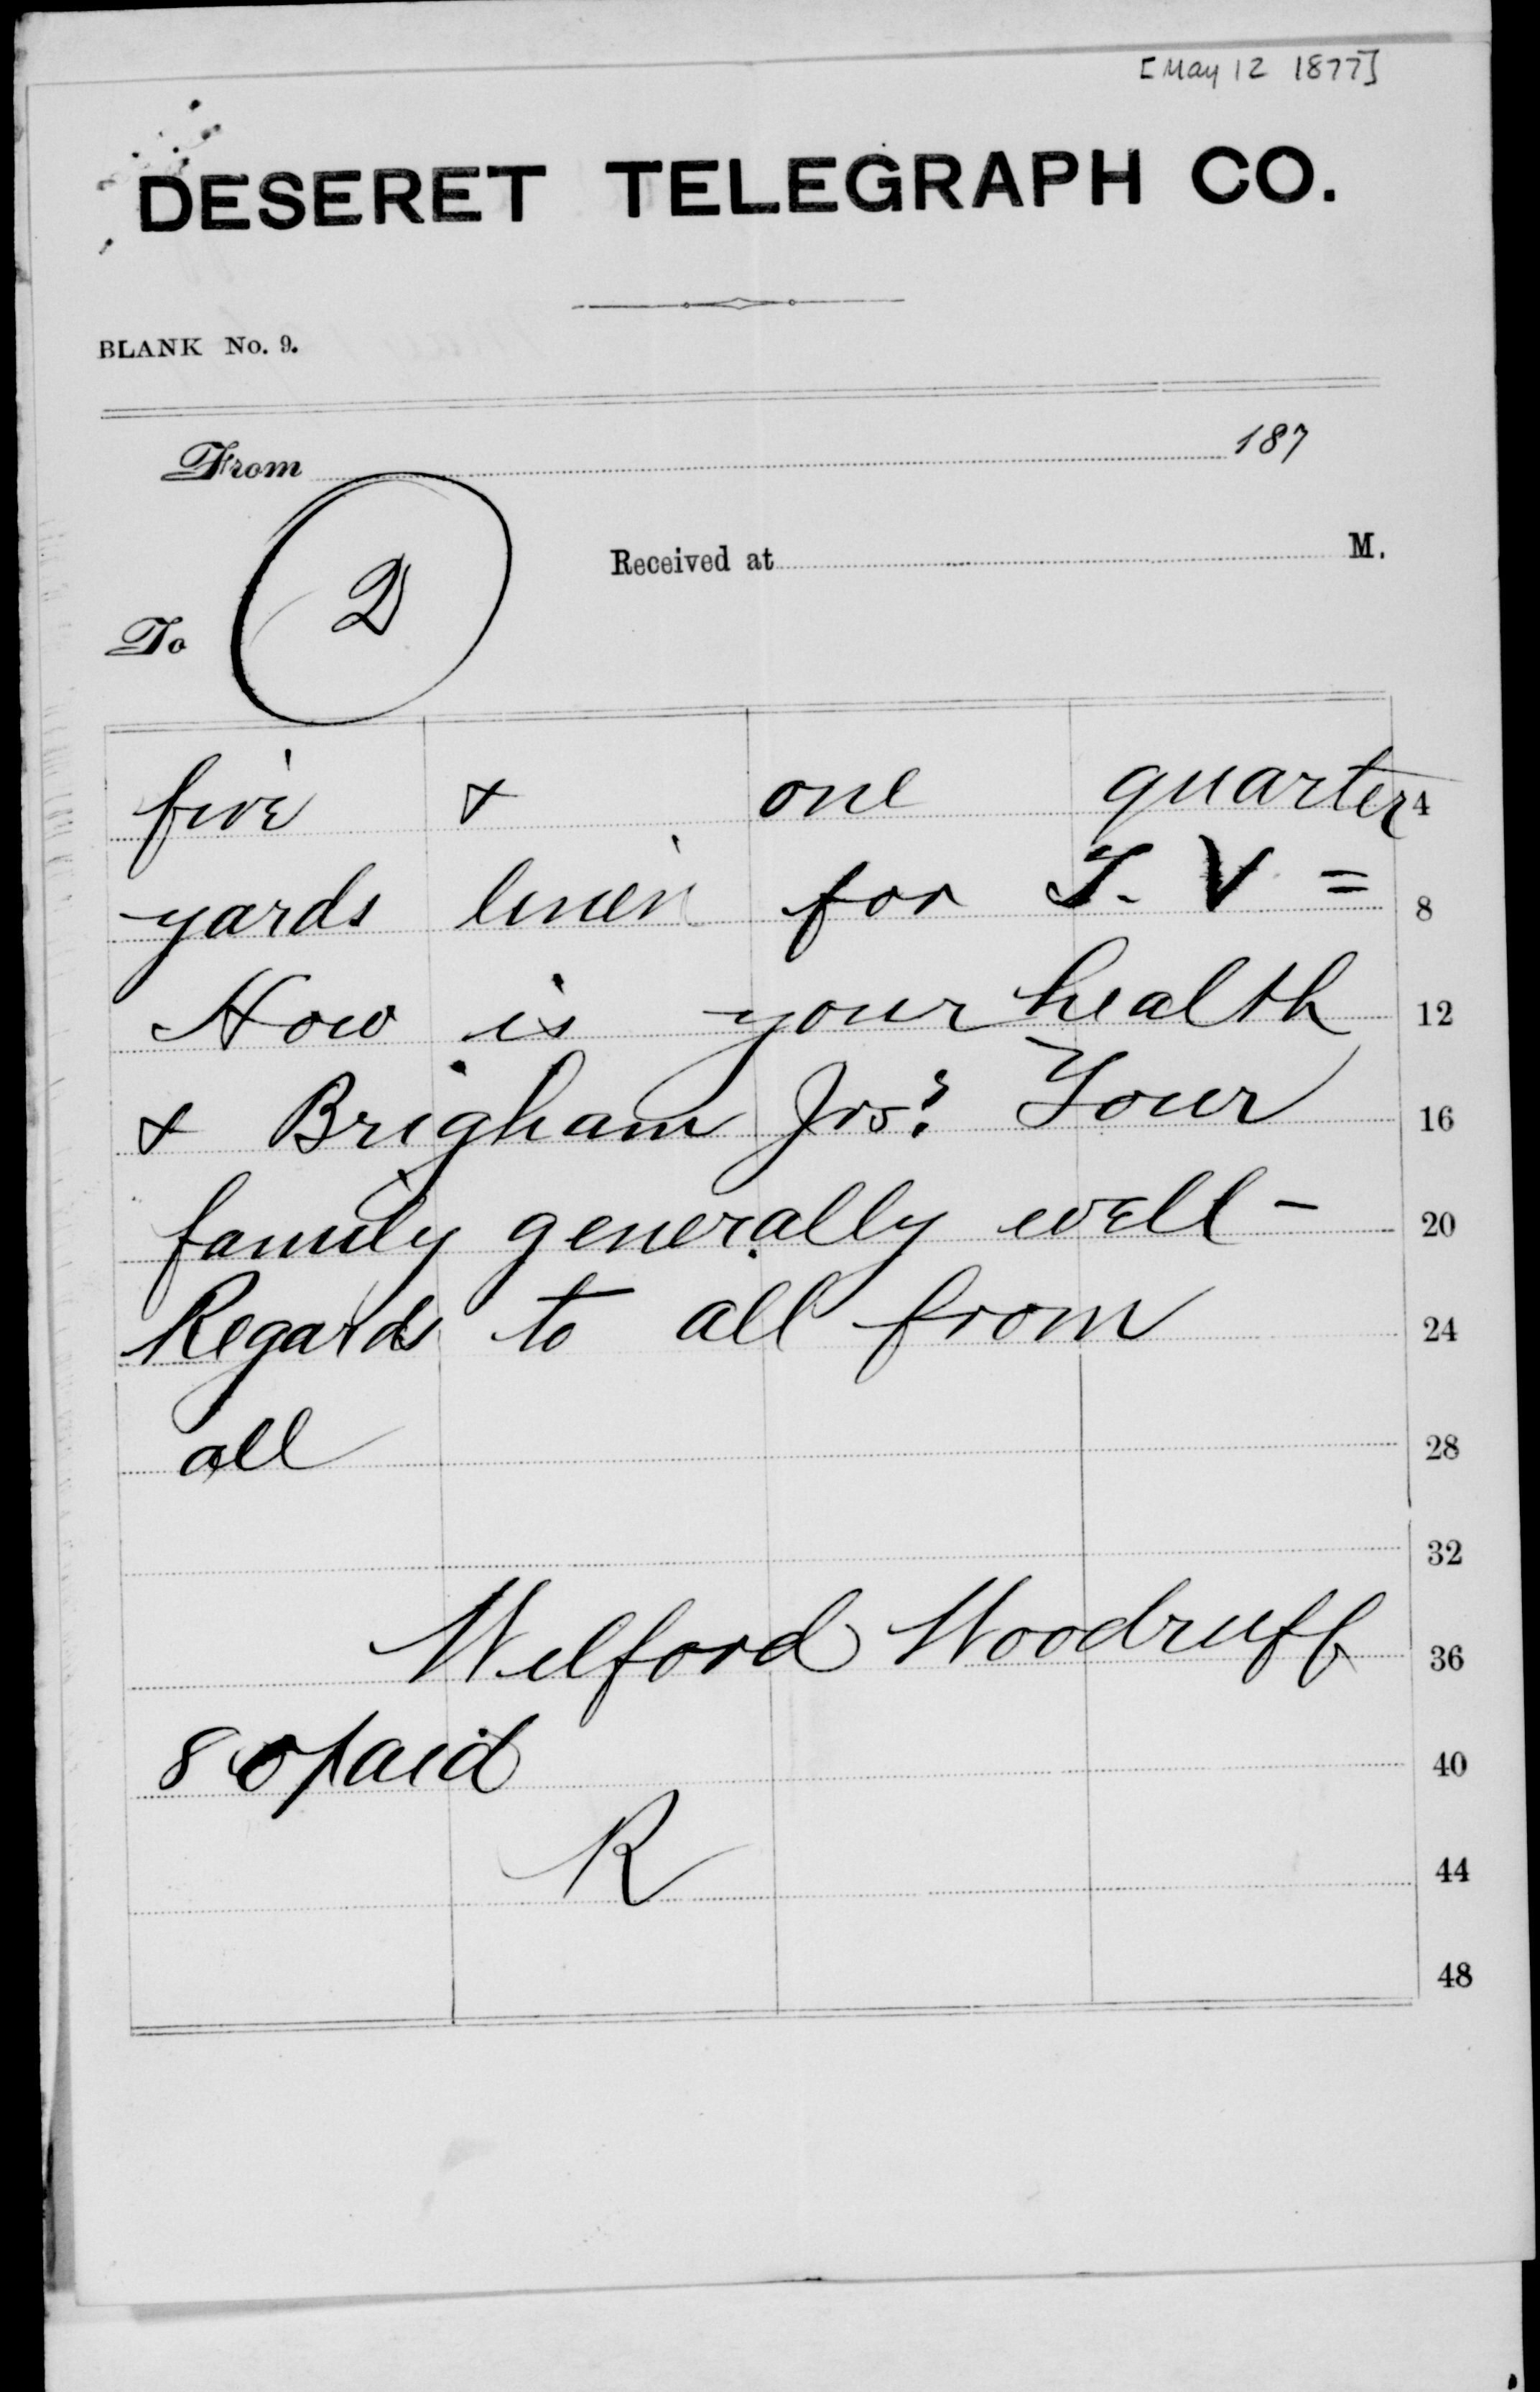 [May 12 1877]
DESERET TELEGRAPH CO.
BLANK No. 9.
From 187
Received at M.
To
D
five & one quarter 4
yards linen for T. V = 8
How is your health 12
& Brigham Jrs? Your 16
family generally well - 20
Regards to all from 24
all 28
32
Wilford Woodruff 36
80 paid 40
R 44
48